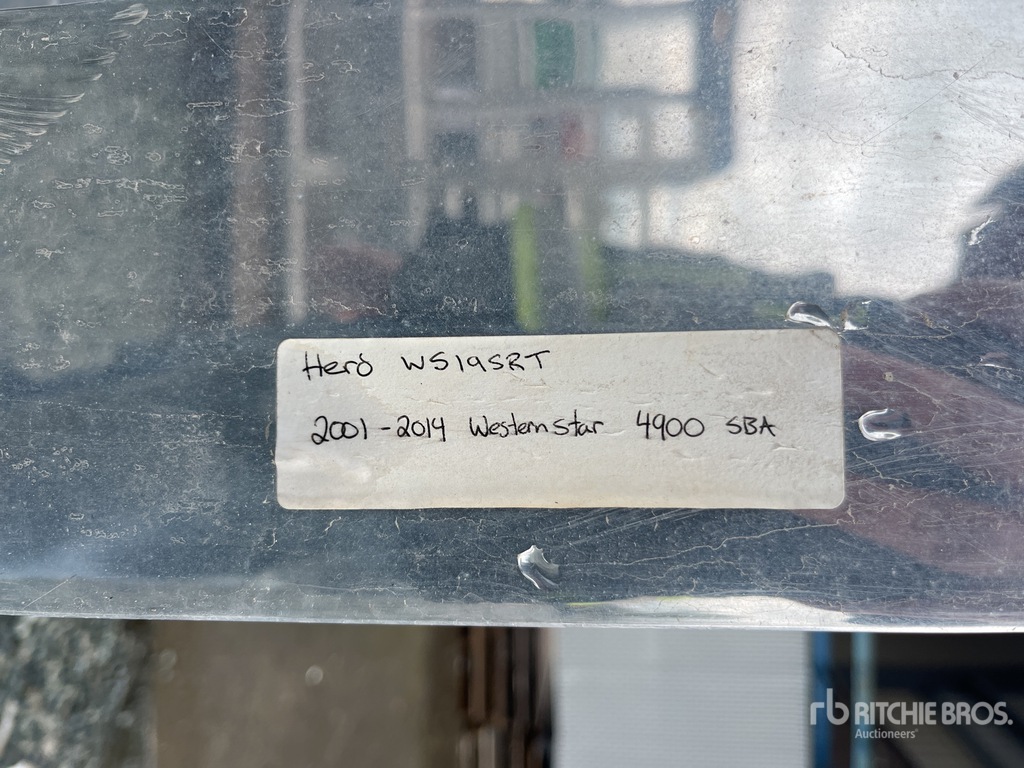 Herd WS19SRT
2001-2014 Western Star 4900 SBA
rb RITCHIE BROS.
Auctioneers